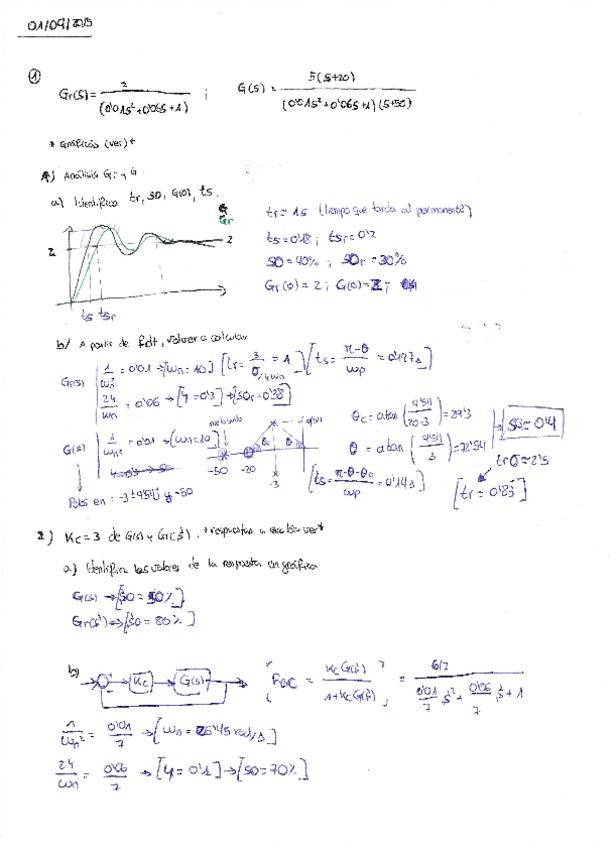 01/09/2015
① Gr(s) = 2 / (0'01s² + 0'06s + 1) ; G(s) = 5(s+20) / (0'01s² + 0'06s + 1)(s+50)
* Gráficas (ver) *
A) Análisis Gr y G
a) Identifica tr, SO, G(0), ts.
G
Gr
2
2
ts tsr
tr = 1s (tiempo que tarda al permanente?)
ts = 0'18 ; tsr = 0'2
SO = 40% ; SOr = 30%
Gr(0) = 2 ; G(0) = 2 ;
b/ A partir de fdt, volver a calcular
Gr(s) 1/ωn² = 0'01 → [ωn = 10] [tr = 3/σ = 1] [ts = (π-θ)/ωp = 0'197s]
2ζ/ωn = 0'06 → [ζ = 0'3] → [SOr = 0'38]
G(s) 1/ωn² = 0'01 → [ωn = 10]
Polos en: -3 ± 9'54j y -50
-50 -20 -3
9'54
θc θ
θc = atan(9'54/20-3) = 29'3
θ = atan(9'54/3) = 72'54
→ SO = 0'4
[ts = (π-θ-θc)/ωp = 0'14s]
trσ = 2'5
[tr = 0'83]
2) Kc = 3 de G(s) y Gr(s), *respuestas a escalón ver*
a) Identifica los valores de la respuesta en gráfica
G(s) → [SO = 50%]
Gr(s) → [SO = 80%]
b) Kc G(s)
FBC = Kc G(s) / 1 + Kc G(s) = 6/7 / (0'01/7 s² + 0'06/7 s + 1)
1/ωn² = 0'01/7 → [ωn = 26'45 rad/s]
2ζ/ωn = 0'06/7 → [ζ = 0'1] → [SO = 70%]